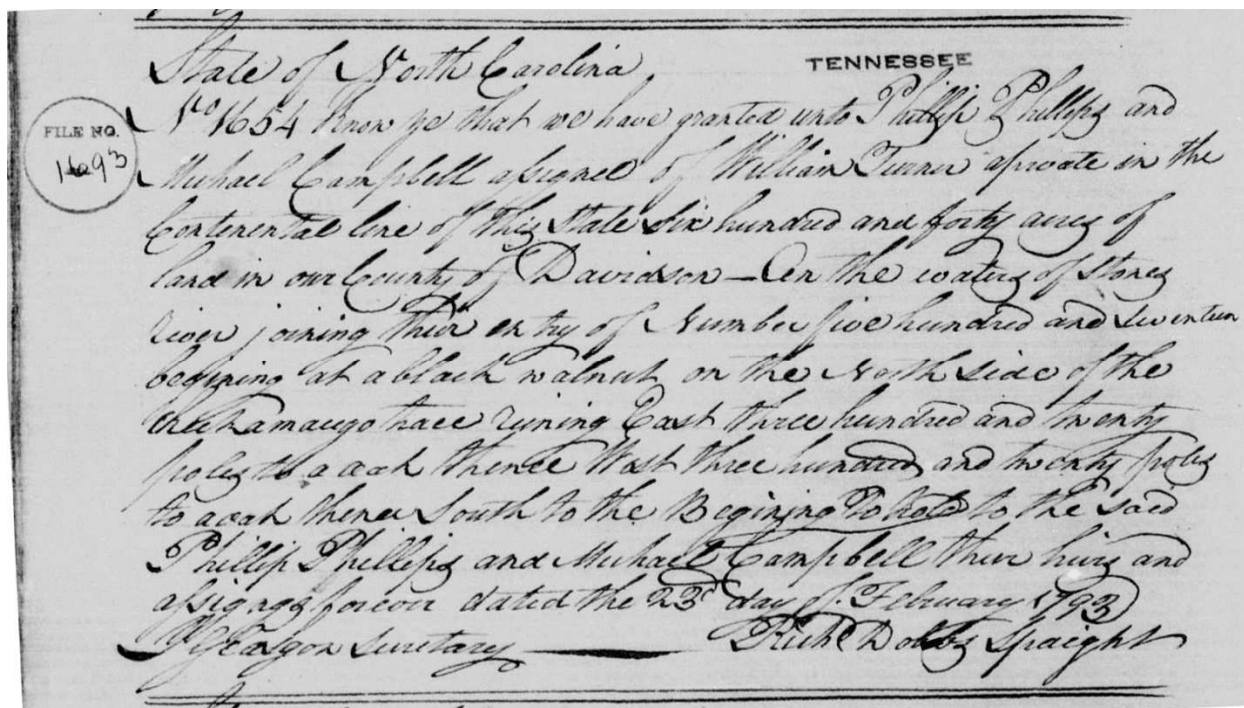 State of North Carolina
TENNESSEE
No 1654 Know ye that we have granted unto Phillip Phillips and
FILE NO.
1693
Michael Campbell assignee of William Turner a private in the
Contenental line of this State six hundred and forty acres of
land in our County of Davidson – On the waters of Stones
river joining their entry of Number five hundred and seventeen
begining at a black walnut on the North side of the
Checkamaugo trace runing East three hundred and twenty
poles to a oak thence West three hundred and twenty poles
to a oak thence South to the Begining To hold to the said
Phillip Phillips and Michael Campbell their hiirs and
assigngs forever dated the 23d day of February 1793
J Glasgow Secretary — Richd Dobbs Spaight